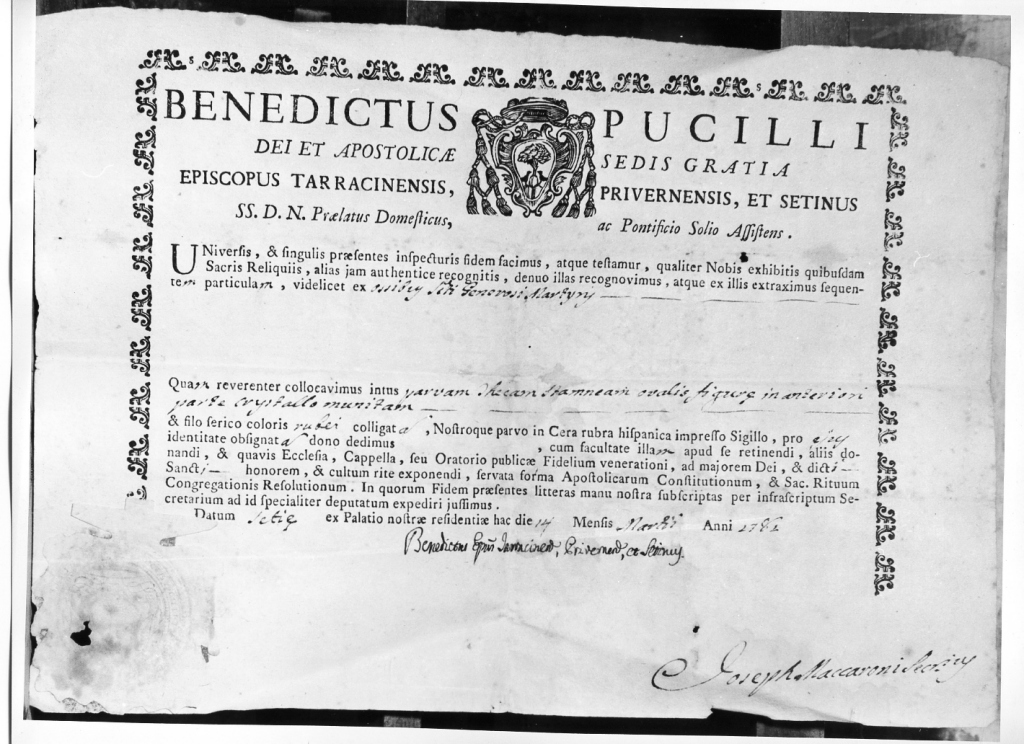 BENEDICTUS PUCILLI
DEI ET APOSTOLICÆ SEDIS GRATIA
EPISCOPUS TARRACINENSIS, PRIVERNENSIS, ET SETINUS
SS. D. N. Prælatus Domeſticus, ac Pontificio Solio Aſſiſtens.
UNiverſis, & ſingulis præſentes inſpecturis fidem facimus, atque teſtamur, qualiter Nobis exhibitis quibuſdam
Sacris Reliquiis, alias jam authentice recognitis, denuo illas recognovimus, atque ex illis extraximus ſequen-
tem particulam, videlicet ex ossibus Sti Generosi Martyris
Quam reverenter collocavimus intus parvam thecam stamneam ovalis figuræ in anteriori
parte crystallo munitam
& filo ſerico coloris rubei colligatā, Noſtroque parvo in Cera rubra hiſpanica impreſſo Sigillo, pro ejus
identitate obſignatā dono dedimus , cum facultate illam apud ſe retinendi, aliis do-
nandi, & quavis Eccleſia, Cappella, ſeu Oratorio publicæ Fidelium venerationi, ad majorem Dei, & dicti
Sancti honorem, & cultum rite exponendi, ſervata forma Apoſtolicarum Conſtitutionum, & Sac. Rituum
Congregationis Reſolutionum. In quorum Fidem præſentes litteras manu noſtra ſubſcriptas per infraſcriptum Se-
cretarium ad id ſpecialiter deputatum expediri juſſimus.
Datum Setiæ ex Palatio noſtræ reſidentiæ hac die 14 Mensis Martii Anni
Benedictus Epus Tarracinen, Privernen, et Setinus
Joseph Maccaroni Secrius